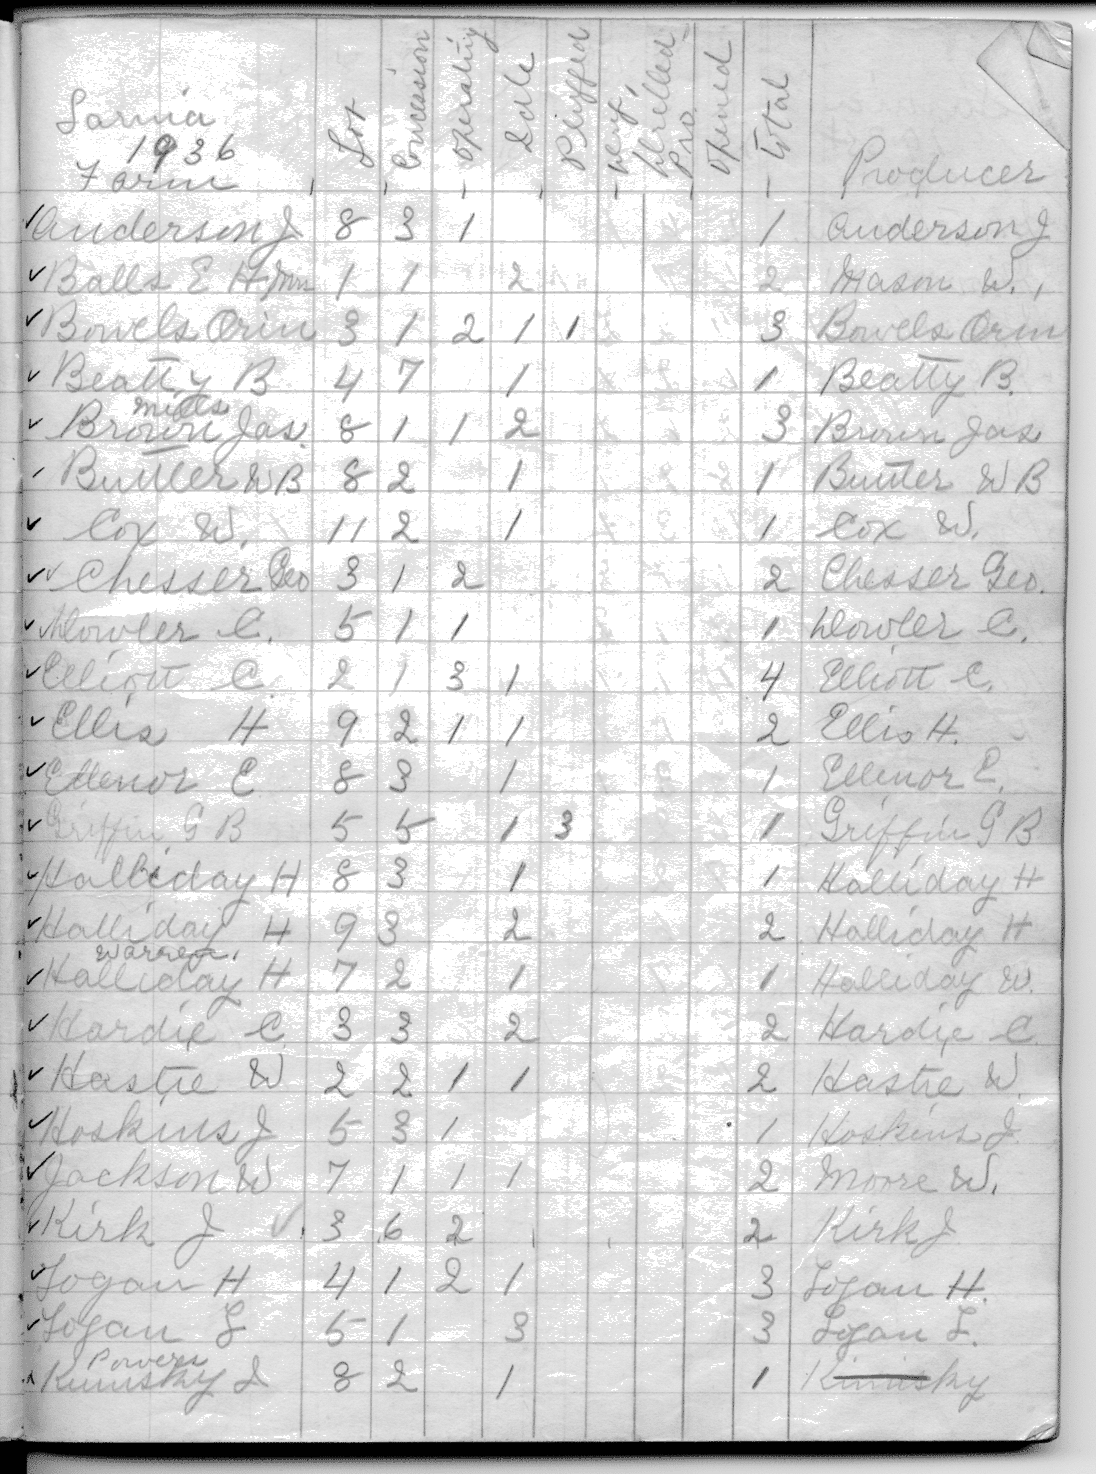 Sarnia
1936
Farm Lot Concession Operating Idle Plugged New Drilled Pro. Opened Total Producer
Anderson J 8 3 1 1 Anderson J
Balls E 1 1 2 2 Mason W.
Bowels Orin 3 1 2 1 1 3 Bowels Orin
Beatty B 4 7 1 1 Beatty B.
Mills
Brown Jas. 8 1 1 2 3 Brown Jas
Buttler W B 8 2 1 1 Buttler W B
Cox W. 11 2 1 1 Cox W.
Chesser Geo 3 1 2 2 Chesser Geo.
Dowler C. 5 1 1 1 Dowler C.
Elliott C. 2 1 3 1 4 Elliott C.
Ellis H 9 2 1 1 2 Ellis H.
Ellenor E 8 3 1 1 Ellenor E.
Griffin G B 5 5 1 3 1 Griffin G B
Halliday H 8 3 1 1 Halliday H
Halliday H 9 3 2 2 Halliday H
Warren
Halliday H 7 2 1 1 Halliday W.
Hardie C. 3 3 2 2 Hardie C
Hastie W 2 2 1 1 2 Hastie W.
Hoskins J 5 3 1 1 Hoskins J
Jackson W 7 1 1 1 2 Moore W.
Kirk J 3 6 2 2 Kirk J
Logan H 4 1 2 1 3 Logan H.
Logan L 5 1 3 3 Logan L.
Powers
Kuminsky J 8 2 1 1